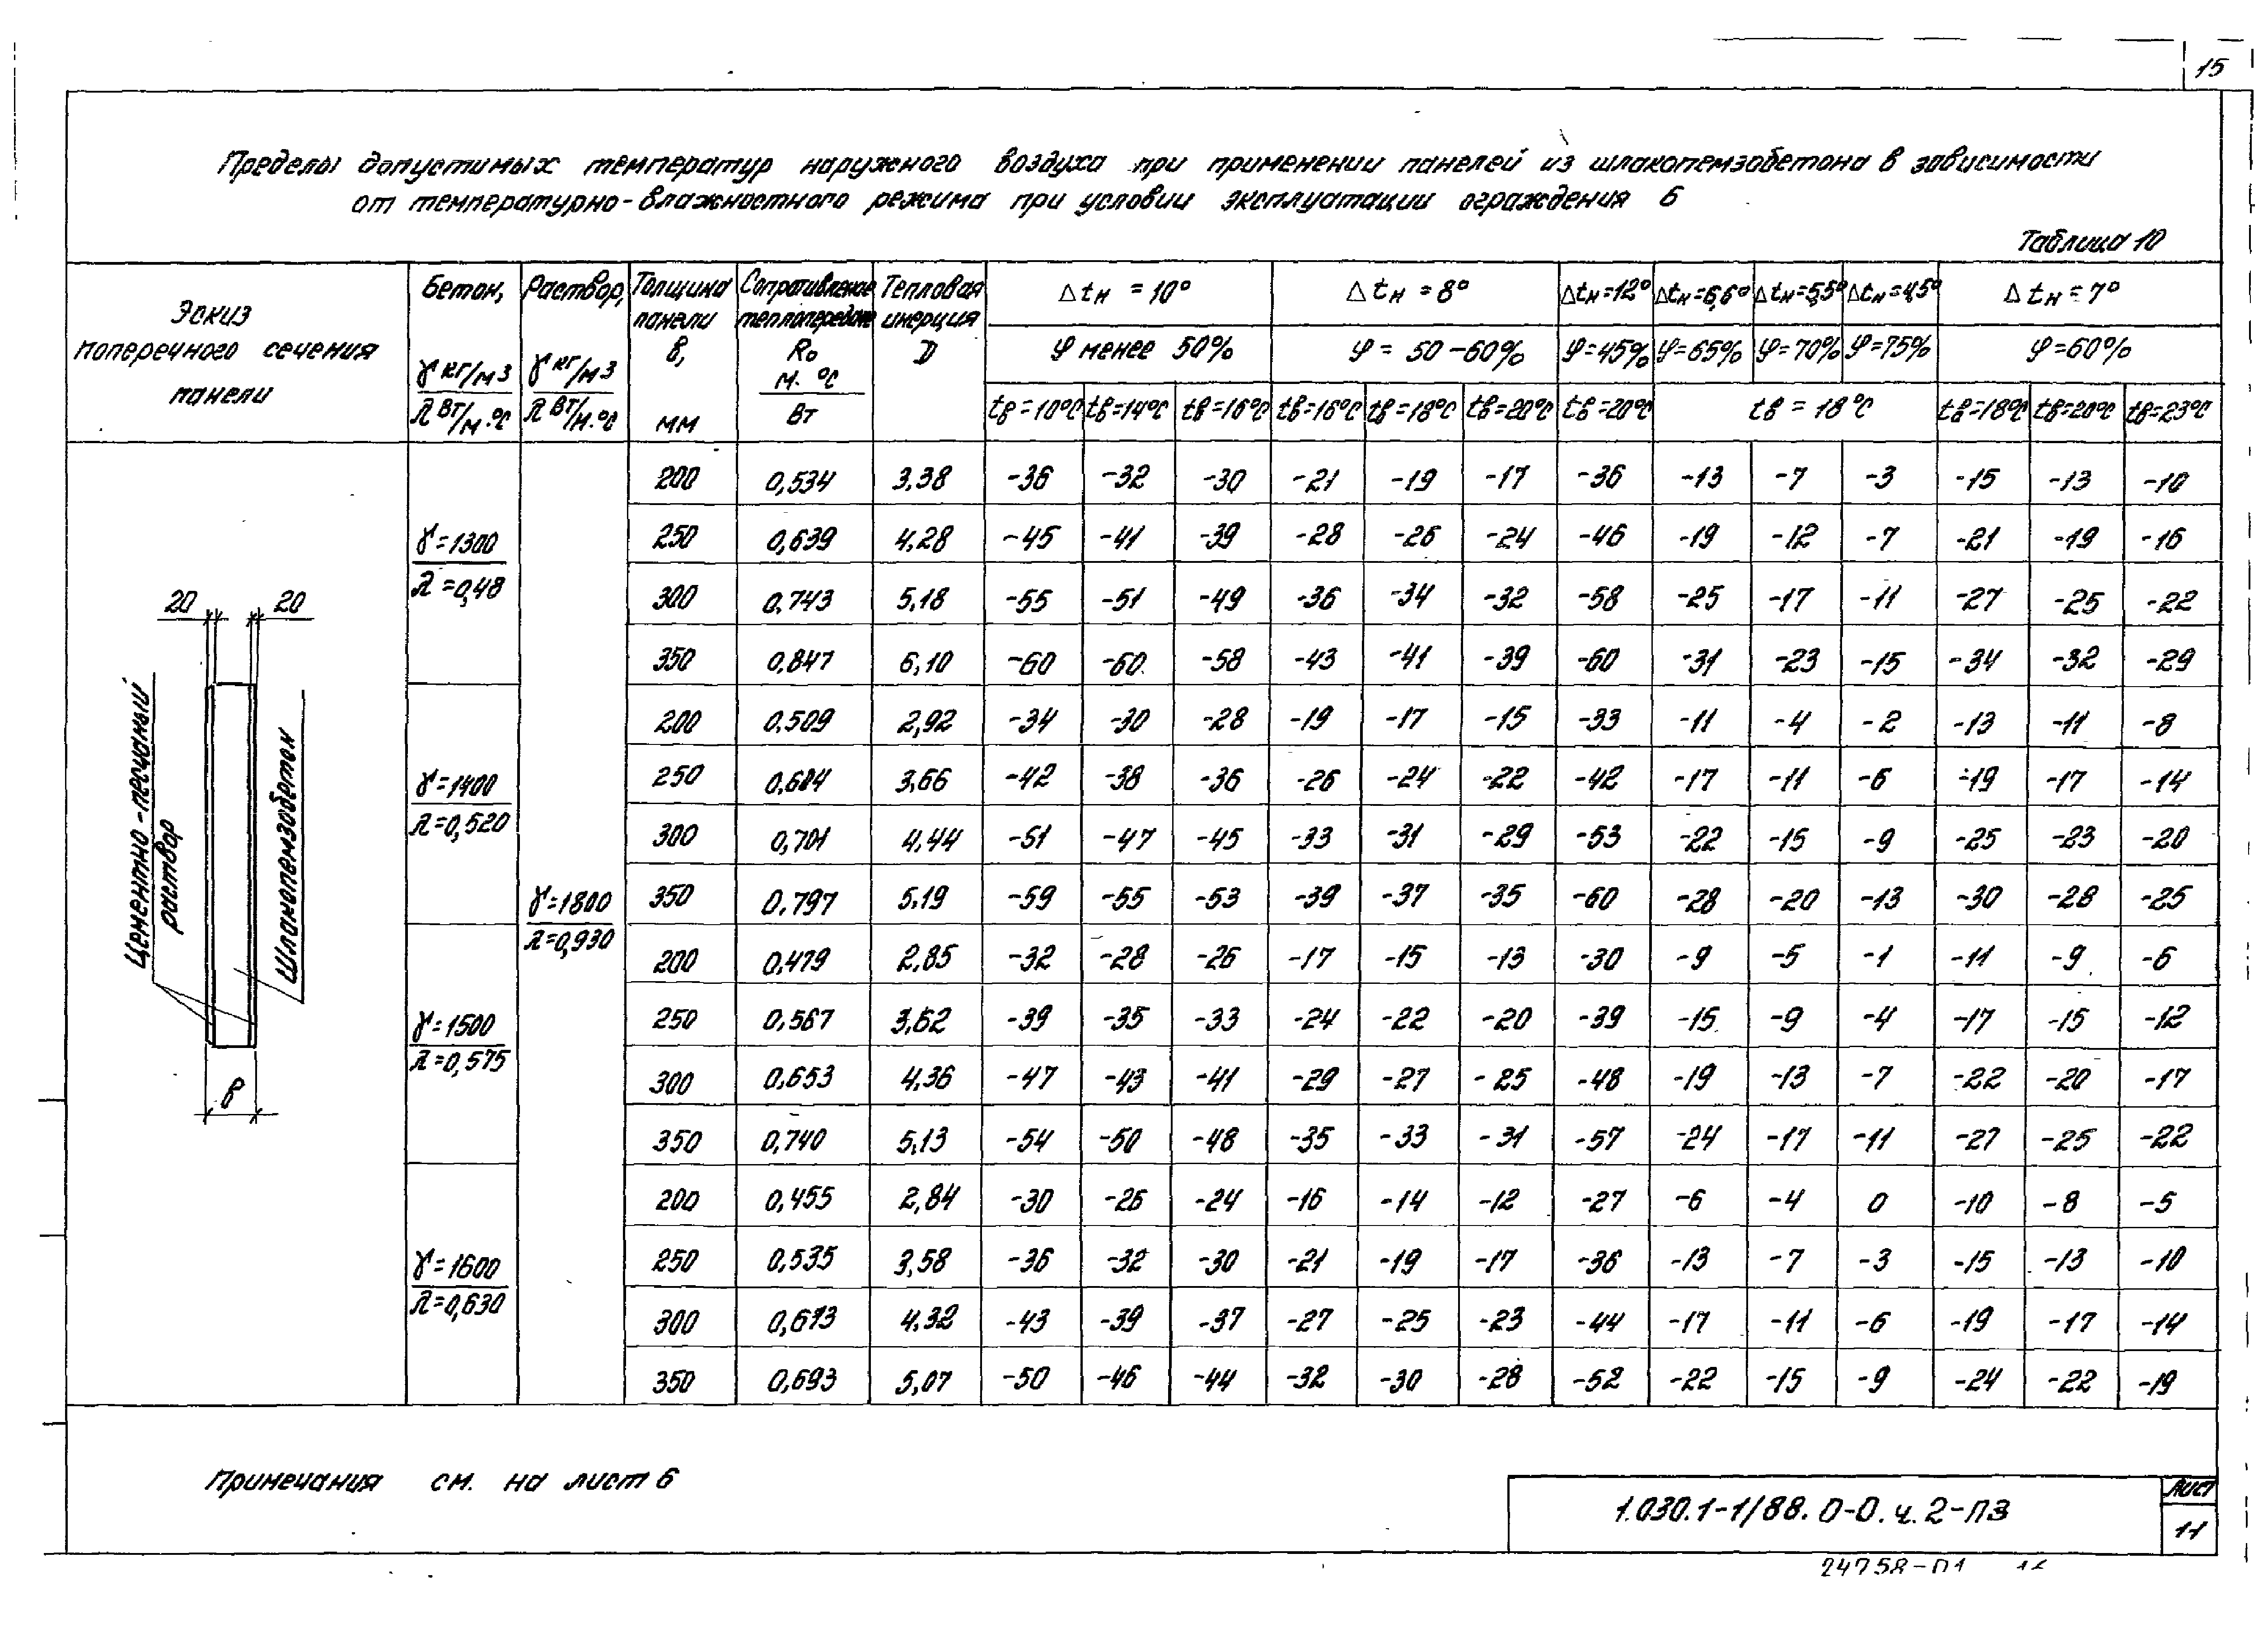 15
Пределы допустимых температур наружного воздуха при применении панелей из шлакопемзобетона в зависимости
от температурно-влажностного режима при условии эксплуатации ограждения Б
Таблица 10
Эскиз поперечного сечения панели
Бетон, γ кг/м3 λ Вт/м.°С
Раствор, γ кг/м3 λ Вт/м.°С
Толщина панели в, мм
Сопротивление теплопередаче R₀ м.°С Вт
Тепловая инерция D
Δtн = 10° Δtн = 8° Δtн=12° Δtн=6,6° Δtн=5,5° Δtн=4,5° Δtн=7°
φ менее 50% φ = 50-60% φ=45% φ=65% φ=70% φ=75% φ=60%
tв=10°С tв=14°С tв=16°С tв=16°С tв=18°С tв=20°С tв=20°С tв = 18°С tв=18°С tв=20°С tв=23°С
20 20
Цементно-песчаный раствор
Шлакопемзобетон
в
γ=1800
λ=0,930
γ=1300
λ=0,48
200 0,534 3,38 -36 -32 -30 -21 -19 -17 -36 -13 -7 -3 -15 -13 -10
250 0,639 4,28 -45 -41 -39 -28 -26 -24 -46 -19 -12 -7 -21 -19 -16
300 0,743 5,18 -55 -51 -49 -36 -34 -32 -58 -25 -17 -11 -27 -25 -22
350 0,847 6,10 -60 -60 -58 -43 -41 -39 -60 -31 -23 -15 -34 -32 -29
γ=1400
λ=0,520
200 0,509 2,92 -34 -30 -28 -19 -17 -15 -33 -11 -4 -2 -13 -11 -8
250 3,66 -42 -38 -36 -26 -24 -22 -42 -17 -11 -6 -19 -17 -14
300 0,701 4,44 -51 -47 -45 -33 -31 -29 -53 -22 -15 -9 -25 -23 -20
350 0,797 5,19 -59 -55 -53 -39 -37 -35 -60 -28 -20 -13 -30 -28 -25
γ=1500
λ=0,575
200 0,479 2,85 -32 -28 -26 -17 -15 -13 -30 -9 -5 -1 -11 -9 -6
250 0,567 3,62 -39 -35 -33 -24 -22 -20 -39 -15 -9 -4 -17 -15 -12
300 0,653 4,36 -47 -43 -41 -29 -27 -25 -48 -19 -13 -7 -22 -20 -17
350 0,740 5,13 -54 -50 -48 -35 -33 -31 -57 -24 -17 -11 -27 -25 -22
γ=1600
λ=0,630
200 0,455 2,84 -30 -26 -24 -16 -14 -12 -27 -6 -4 0 -10 -8 -5
250 0,535 3,58 -36 -32 -30 -21 -19 -17 -36 -13 -7 -3 -15 -13 -10
300 4,32 -43 -39 -37 -27 -25 -23 -44 -17 -11 -6 -19 -17 -14
350 0,693 5,07 -50 -46 -44 -32 -30 -28 -52 -22 -15 -9 -24 -22 -19
Примечания см. на лист 6
1.030.1-1/88. 0-0. ч. 2-ПЗ
Лист
11
24758-01